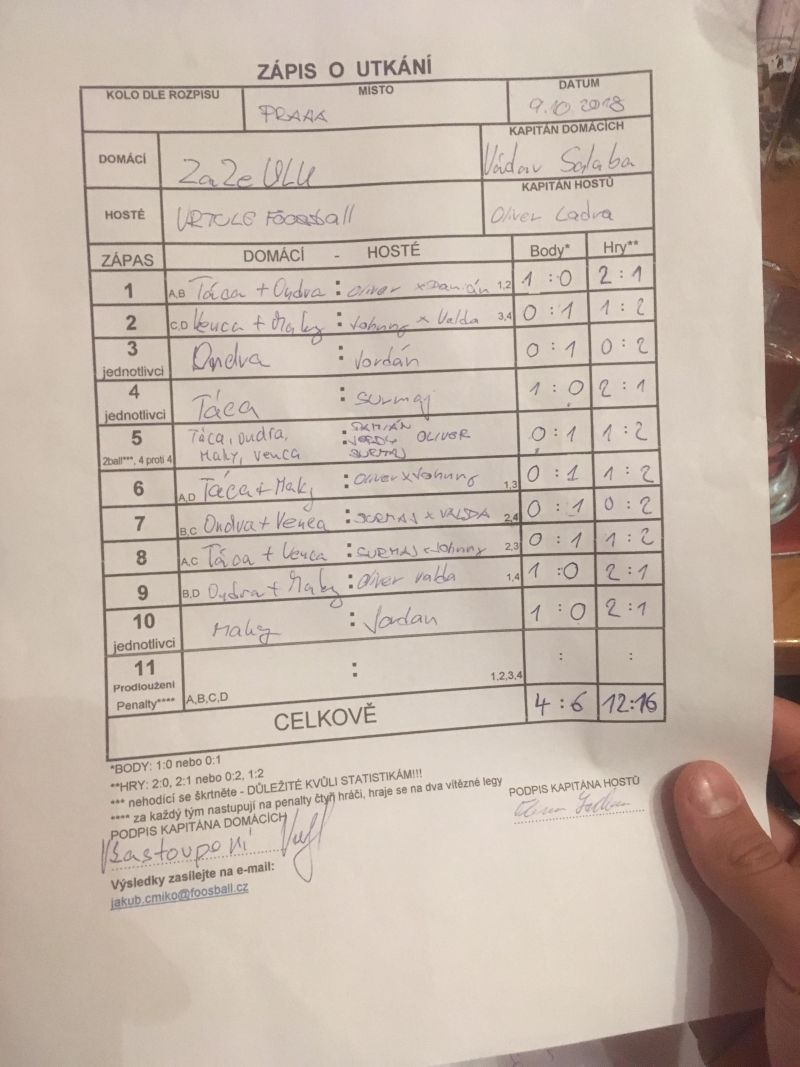 ZÁPIS O UTKÁNÍ
KOLO DLE ROZPISU MÍSTO DATUM
PRAHA 9.10.2018
DOMÁCÍ ZaZe ULU KAPITÁN DOMÁCÍCH
Václav Salaba
HOSTÉ VRTULE Foosball KAPITÁN HOSTŮ
Oliver Ladra
ZÁPAS DOMÁCÍ - HOSTÉ Body* Hry**
1 A,B Táca + Ondra : Oliver x Damián 1,2 1:0 2:1
2 C,D Venca + Maky : Johnny x Valda 3,4 0:1 1:2
3 jednotlivci Ondra : Jordán 0:1 0:2
4 jednotlivci Táca : Surmaj 1:0 2:1
5 Táca, Ondra, : DAMIÁN 0:1 1:2
2ball***, 4 proti 4 Maky, Venca JORDY OLIVER
SURMAJ
6 A,D Táca + Maky : Oliver x Johnny 1,3 0:1 1:2
7 B,C Ondra + Venca : SURMAJ x VALDA 2,4 0:1 0:2
8 A,C Táca + Venca : SURMAJ x Johnny 2,3 0:1 1:2
9 B,D Ondra + Maky : Oliver Valda 1,4 1:0 2:1
10 jednotlivci Maky : Jordan 1:0 2:1
11 : : :
Prodloužení
Penalty**** A,B,C,D 1,2,3,4
CELKOVĚ 4:6 12:16
*BODY: 1:0 nebo 0:1
**HRY: 2:0, 2:1 nebo 0:2, 1:2
*** nehodící se škrtněte - DŮLEŽITÉ KVŮLI STATISTIKÁM!!!
**** za každý tým nastupují na penalty čtyři hráči, hraje se na dva vítězné legy
PODPIS KAPITÁNA DOMÁCÍCH PODPIS KAPITÁNA HOSTŮ
Zastoupení
Výsledky zasílejte na e-mail:
jakub.cmiko@foosball.cz